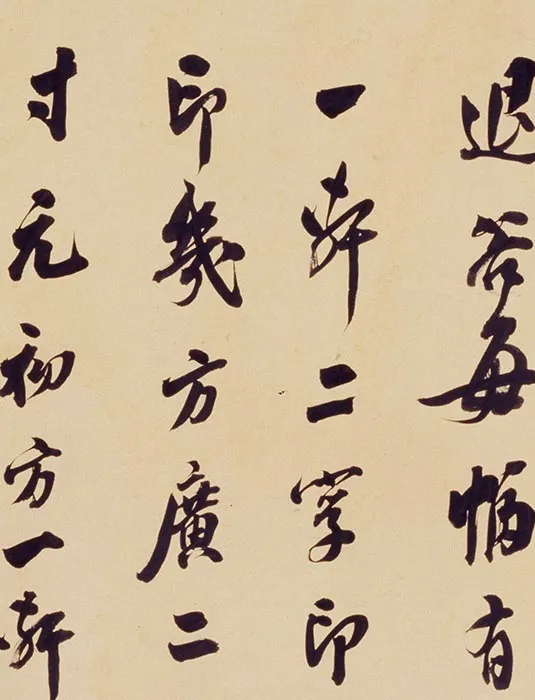 退谷每幅有
一軒二字印
印幾方廣二
寸元初方一軒